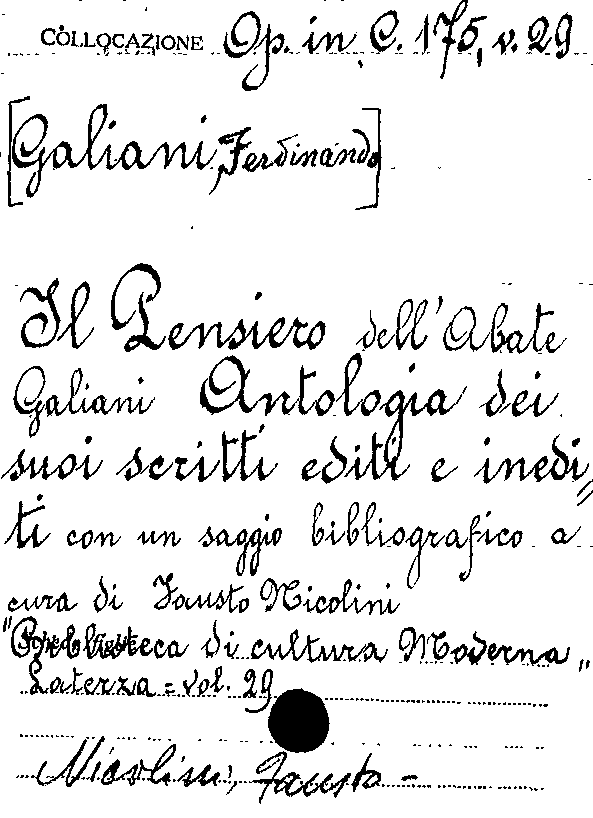 COLLOCAZIONE Op. in C. 175, v. 29
[Galiani, Ferdinando]
Il Pensiero dell'Abate
Galiani Antologia dei
suoi scritti editi e inedi=
ti con un saggio bibliografico a
cura di Fausto Nicolini
"Biblioteca di cultura Moderna„
Laterza = vol. 29
Nicolini, Fausto -